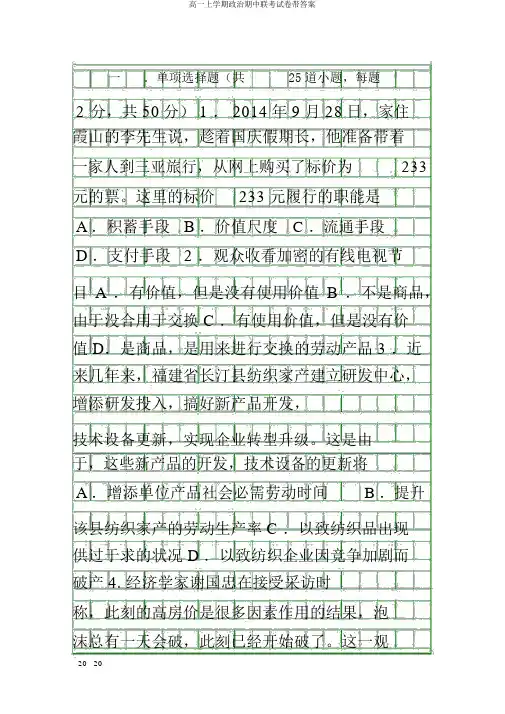 高一上学期政治期中联考试卷带答案
一 ．单项选择题（共 25道小题，每题
2 分，共 50 分） 1 ． 2014 年 9 月 28 日，家住
霞山的李先生说，趁着国庆假期长，他准备带着
一家人到三亚旅行，从网上购买了标价为 233
元的票。这里的标价 233 元履行的职能是
A ．积蓄手段 B ．价值尺度 C ．流通手段
D ．支付手段 2 ．观众收看加密的有线电视节
目 A ．有价值，但是没有使用价值 B ．不是商品，
由于没合用于交换 C ．有使用价值，但是没有价
值 D．是商品，是用来进行交换的劳动产品 3 ．近
来几年来，福建省长汀县纺织家产建立研发中心，
增添研发投入，搞好新产品开发，
技术设备更新，实现企业转型升级。这是由
于，这些新产品的开发，技术设备的更新将
A ．增添单位产品社会必需劳动时间 B ．提升
该县纺织家产的劳动生产率 C ．以致纺织品出现
供过于求的状况 D ．以致纺织企业因竞争加剧而
破产 4. 经济学家谢国忠在接受采访时
称，此刻的高房价是很多因素作用的结果，泡
沫总有一天会破，此刻已经开始破了。这一观
20 20